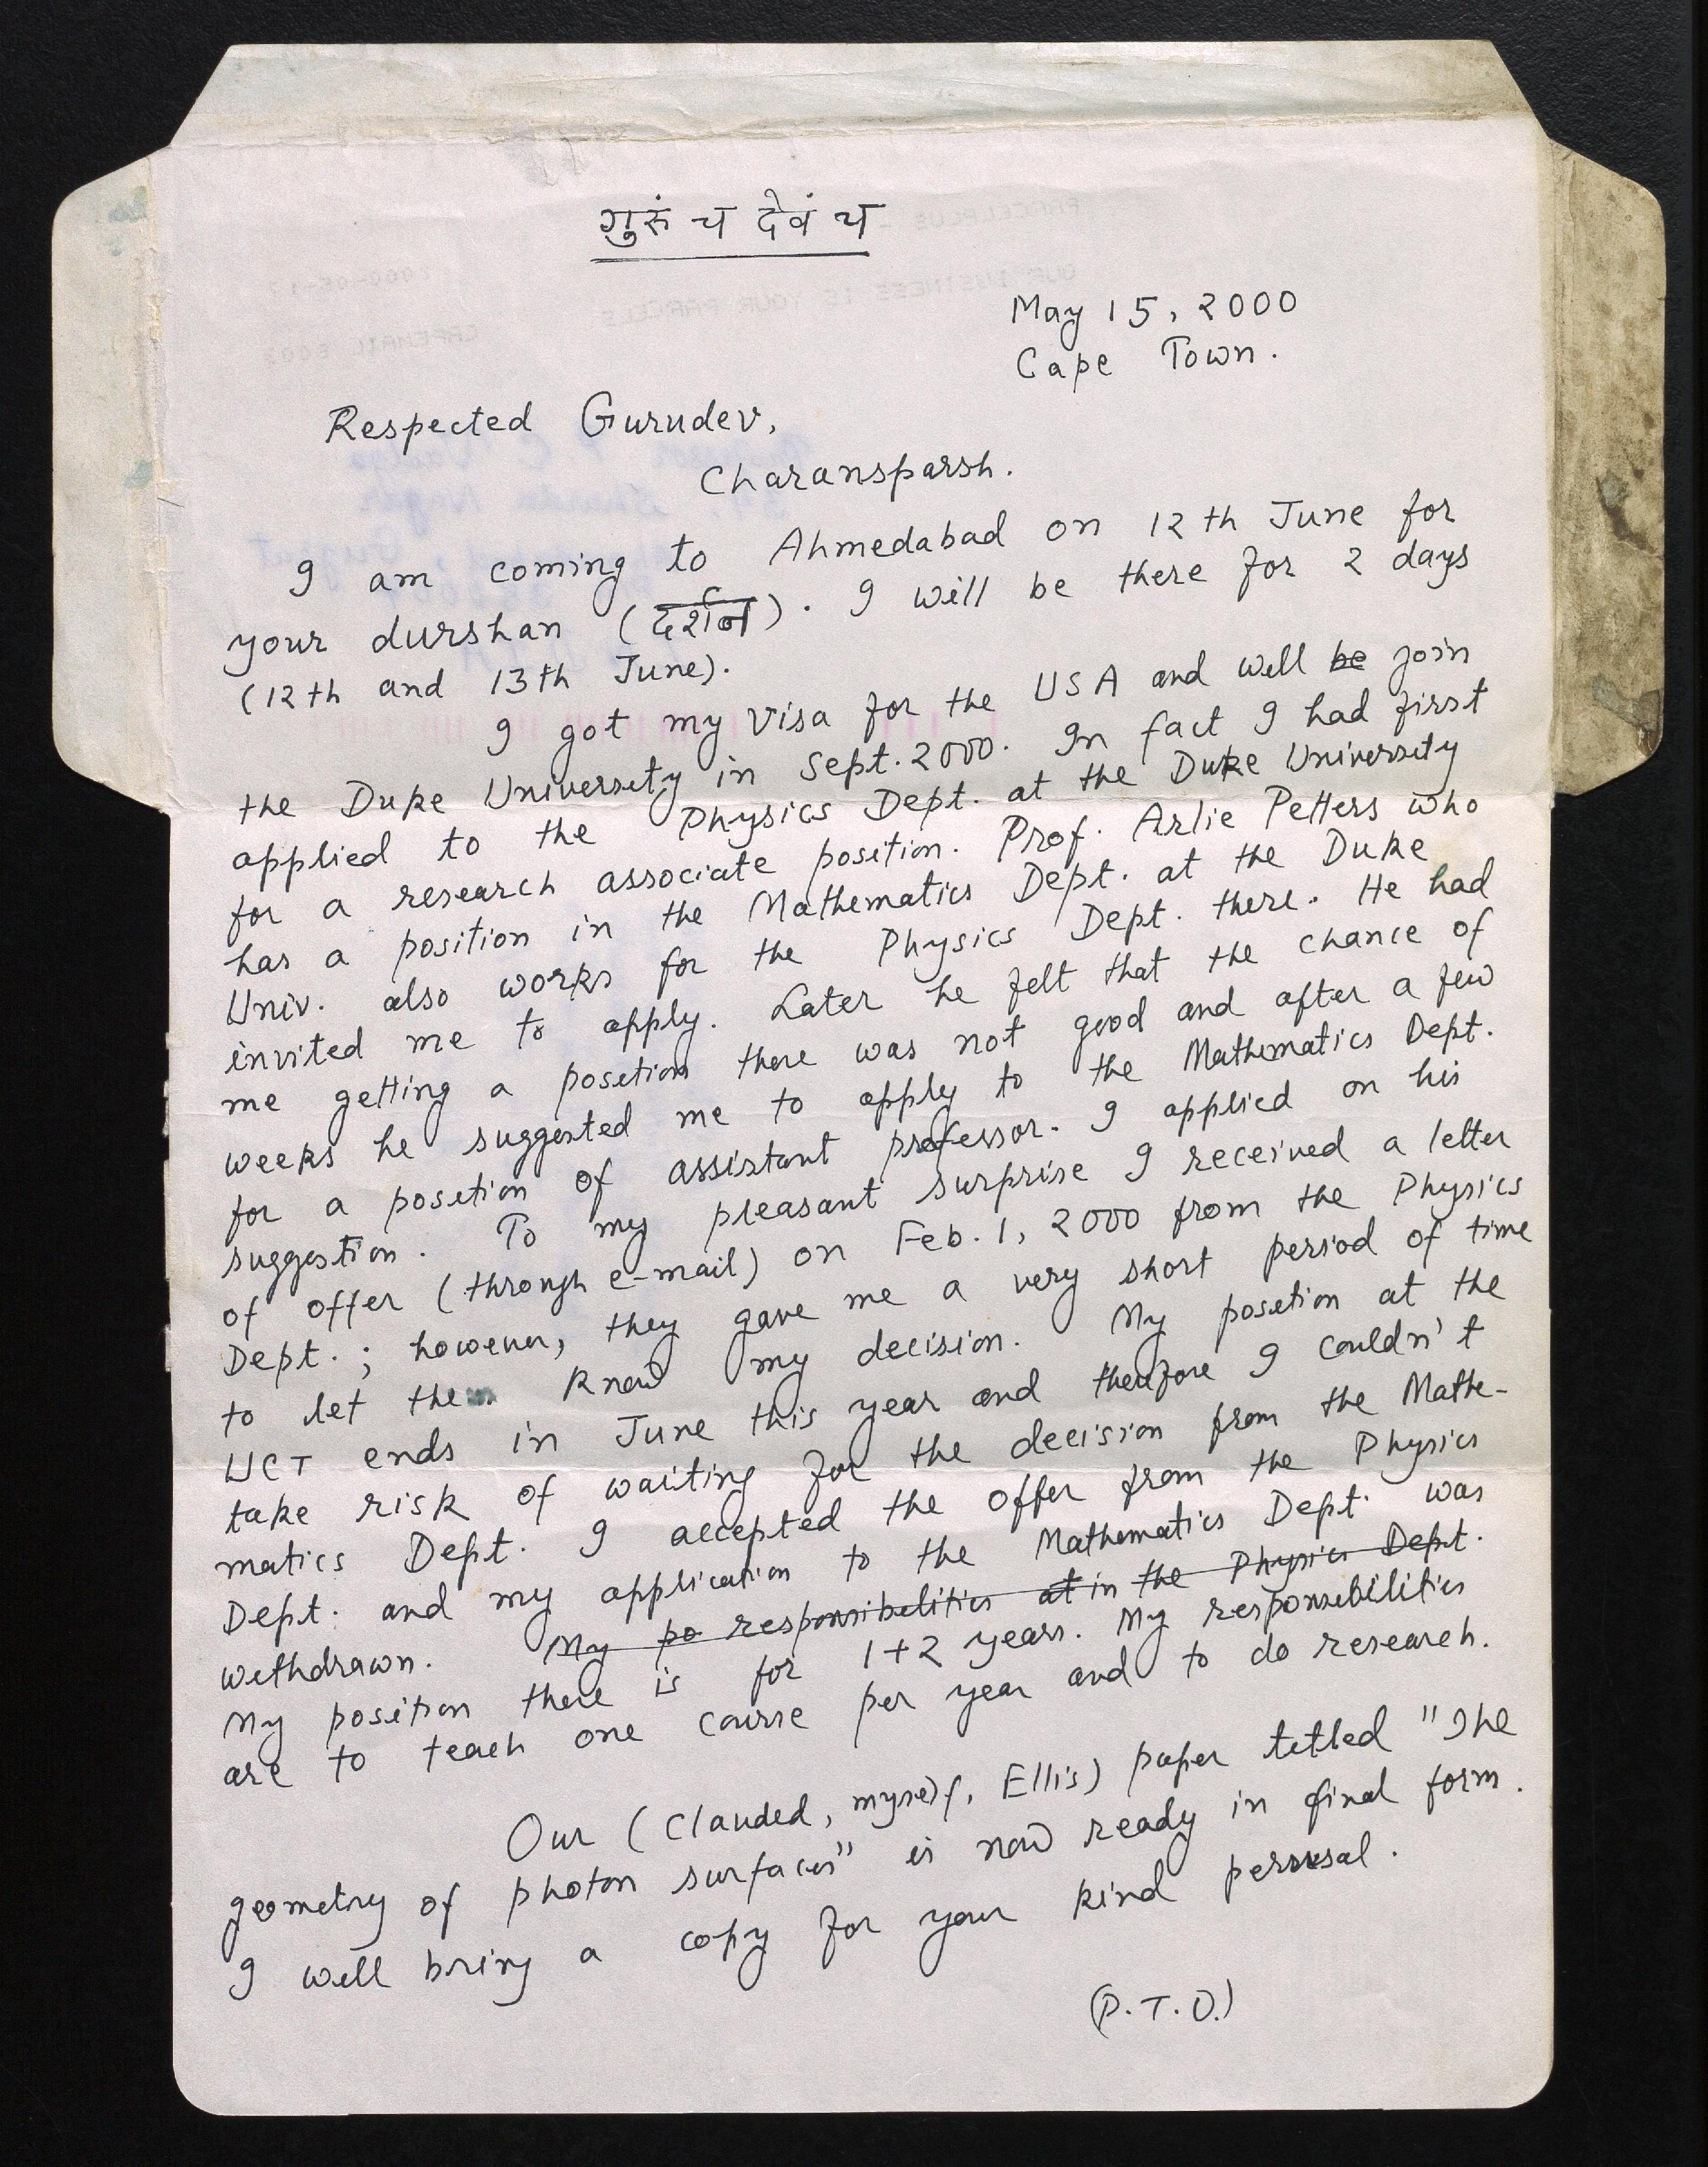 गुरुं च देवं च
May 15, 2000
Cape Town.
Respected Gurudev,
Charansparsh.
I am coming to Ahmedabad on 12th June for
your durshan (दर्शन). I will be there for 2 days
(12th and 13th June).
I got my visa for the USA and will be join
the Duke University in Sept. 2000. In fact I had first
applied to the Physics Dept. at the Duke University
for a research associate position. Prof. Arlie Petters who
has a position in the Mathematics Dept. at the Duke
Univ. also works for the Physics Dept. there. He had
invited me to apply. Later he felt that the chance of
me getting a position there was not good and after a few
weeks he suggested me to apply to the Mathematics Dept.
for a position of assistant professor. I applied on his
suggestion. To my pleasant surprise I received a letter
of offer (through e-mail) on Feb. 1, 2000 from the Physics
Dept.; however, they gave me a very short period of time
to let them know my decision. My position at the
UCT ends in June this year and therefore I couldn't
take risk of waiting for the decision from the Mathe-
matics Dept. I accepted the offer from the Physics
Dept. and my application to the Mathematics Dept. was
withdrawn. My po responsibilities at in the Physics Dept.
My position there is for 1+2 years. My responsibilities
are to teach one course per year and to do research.
Our (Clauded, myself, Ellis) paper titled "The
geometry of photon surfaces" is now ready in final form.
I will bring a copy for your kind perusal.
(P.T.O.)